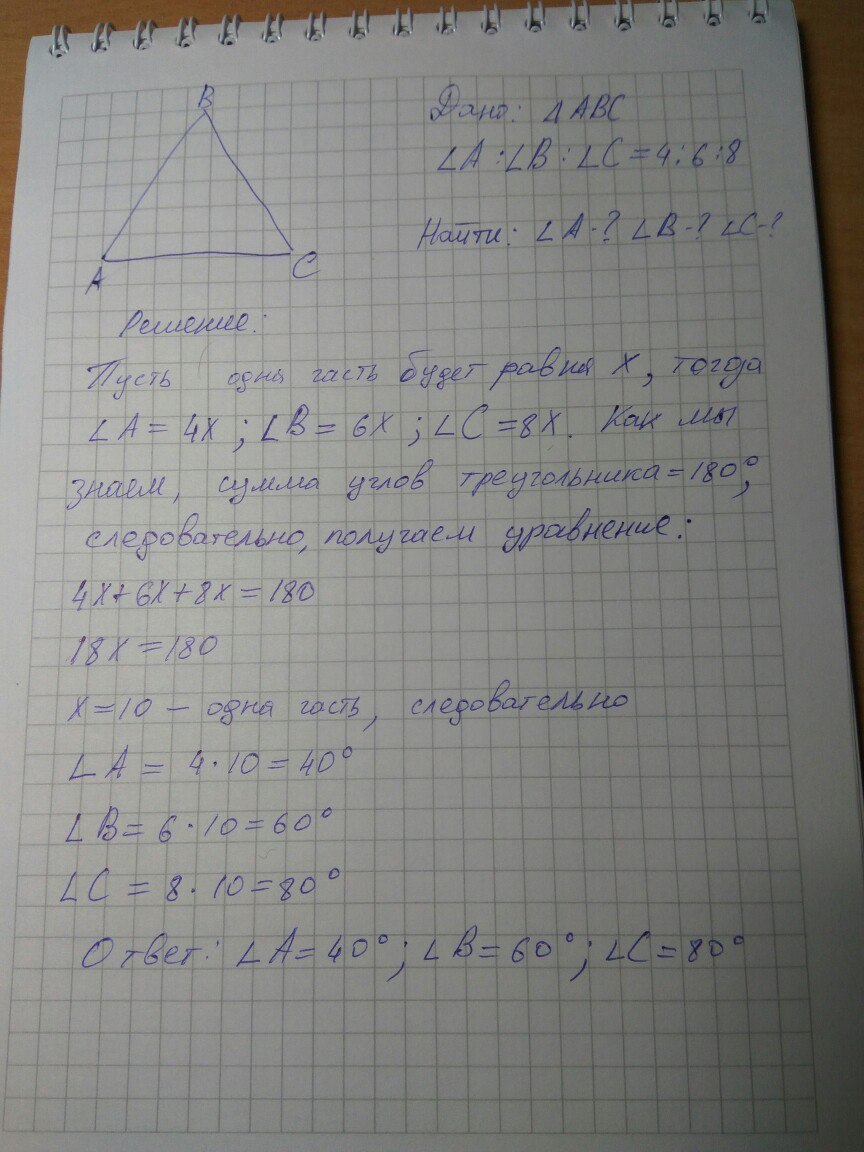 B
A
C
Дано: △ABC
∠A:∠B:∠C=4:6:8
Найти: ∠A-? ∠B-? ∠C-?
Решение:
Пусть одна часть будет равна X, тогда
∠A = 4X; ∠B = 6X; ∠C = 8X. Как мы
знаем, сумма углов треугольника = 180°,
следовательно, получаем уравнение:
4X+6X+8X=180
18X=180
X=10 – одна часть, следовательно
∠A = 4·10=40°
∠B= 6·10=60°
∠C = 8·10=80°
Ответ: ∠A=40°; ∠B=60°; ∠C=80°